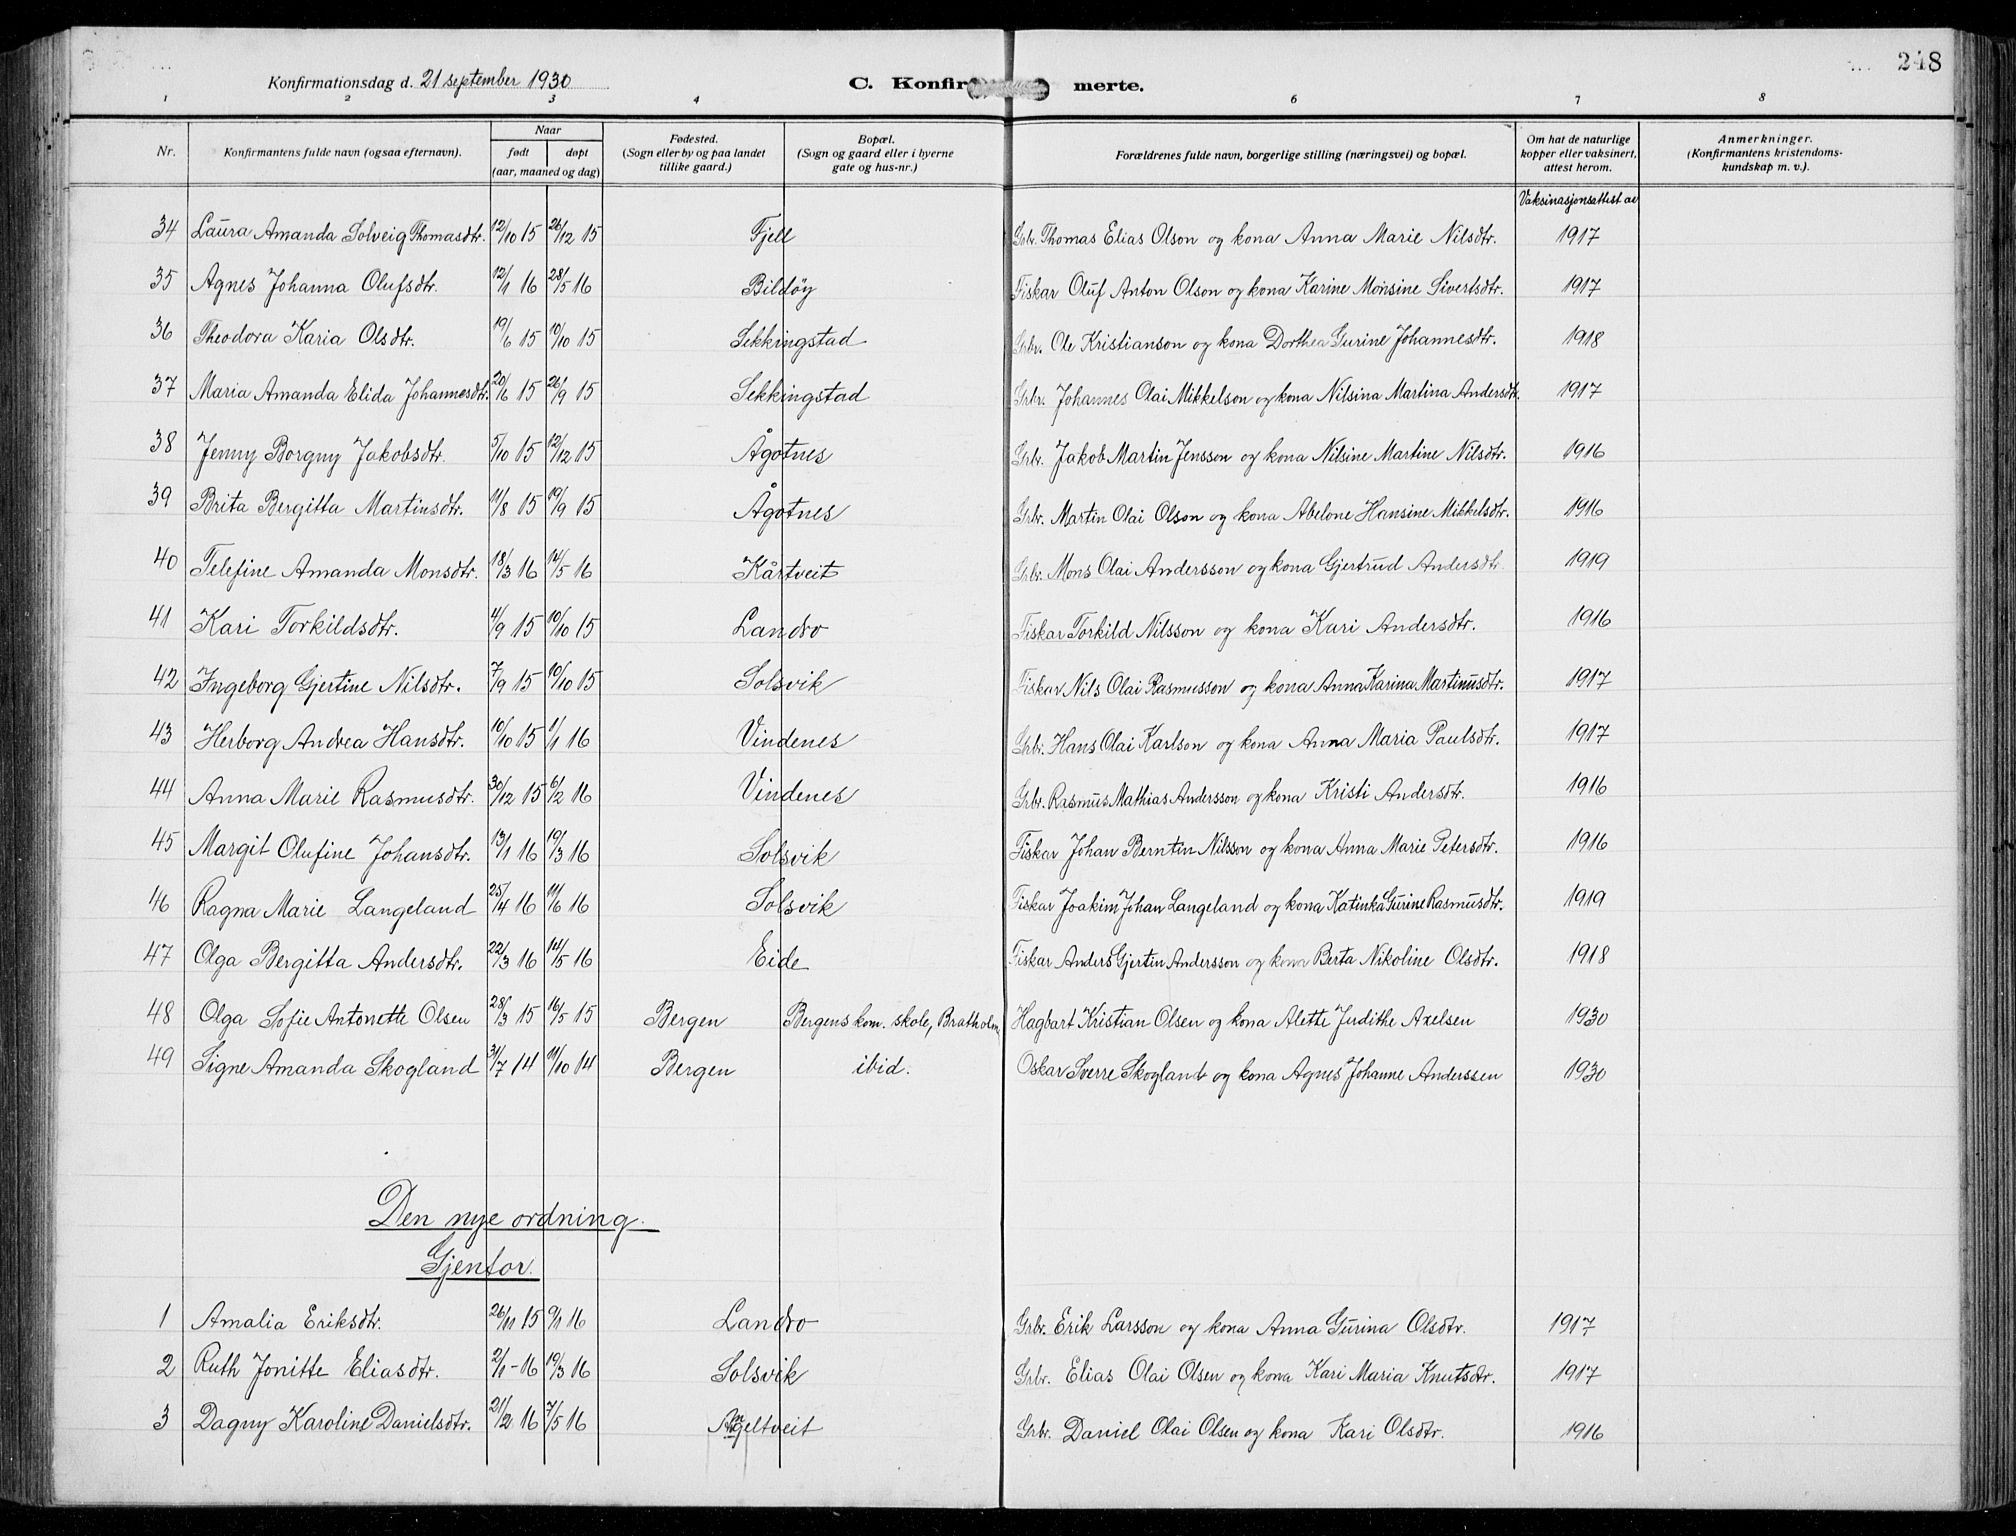 248
Konfirmationsdag d. 21 september 1930 C. Konfirmerte.
1 2 3 4 5 6 7 8
Nr. Konfirmantens fulde navn (ogsaa efternavn). Naar født døpt (aar, maaned og dag) Fødested. (Sogn eller by og paa landet tillike gaard.) Bopæl. (Sogn og gaard eller i byerne gate og hus-nr.) Forældrenes fulde navn, borgerlige stilling (næringsvei) og bopæl. Om hat de naturlige kopper eller vaksinert, attest herom. Anmerkninger. (Konfirmantens kristendoms-kundskap m. v.).
Vaksinasjonsattest av
34 Laura Amanda Solveig Thomasdtr. 12/10 15 26/12 15 Fjell Grbr. Thomas Elias Olson og kona Anna Marie Nilsdtr. 1917
35 Agnes Johanna Olufsdtr. 12/1 16 28/5 16 Bildöy Fiskar Oluf Anton Olson og kona Karine Monsine Sivertsdtr. 1917
36 Theodora Karia Olsdtr. 19/6 15 10/10 15 Sekkingstad Grbr. Ole Kristianson og kona Dorthea Gurine Johannesdtr. 1918
37 Maria Amanda Elida Johannesdtr. 20/6 15 26/9 15 Sekkingstad Grbr. Johannes Olai Mikkelson og kona Nilsina Martina Andersdtr. 1917
38 Jenny Borgny Jakobsdtr. 5/10 15 12/12 15 Ågotnes Grbr. Jakob Martin Jensson og kona Nilsine Martine Nilsdtr. 1916
39 Brita Bergitta Martinsdtr. 11/8 15 19/9 15 Ågotnes Grbr. Martin Olai Olson og kona Abelone Hansine Mikkelsdtr. 1916
40 Telefine Amanda Monsdtr. 18/3 16 14/5 16 Kårtveit Grbr. Mons Olai Andersson og kona Gjertrud Andersdtr 1919
41 Kari Torkildsdtr. 4/9 15 10/10 15 Landro Fiskar Torkild Nilsson og kona Kari Andersdtr. 1916
42 Ingeborg Gjertine Nilsdtr. 7/9 15 10/10 15 Solsvik Fiskar Nils Olai Rasmusson og kona Anna Karina Martinusdtr. 1917
43 Herborg Andrea Hansdtr. 10/10 15 1/1 16 Vindenes Grbr. Hans Olai Karlson og kona Anna Maria Paulsdtr. 1917
44 Anna Marie Rasmusdtr. 30/12 15 6/2 16 Vindenes Grbr. Rasmus Mathias Andersson og kona Kristi Andersdtr. 1916
45 Margit Olufine Johansdtr. 13/1 16 19/3 16 Solsvik Fiskar Johan Berntin Nilsson og kona Anna Marie Petersdtr. 1916
46 Ragna Marie Langeland 25/4 16 11/6 16 Solsvik Fiskar Joakim Johan Langeland og kona Katinka Gurine Rasmusdtr. 1919
47 Olga Bergitta Andersdtr. 22/3 16 14/5 16 Eide Fiskar Anders Gjertin Andersson og kona Berta Nikoline Olsdtr. 1918
48 Olga Sofie Antonette Olsen 28/3 15 16/5 15 Bergen Bergens kom. skole, Bratholm. Hagbart Kristian Olsen og kona Alette Judithe Axelsen 1930
49 Signe Amanda Skogland 31/7 14 11/10 14 Bergen ibid. Oskar Sverre Skogland og kona Agnes Johanne Anderssen 1930
Den nye ordning.
Gjentor.
1 Amalia Eriksdtr. 26/11 15 9/1 16 Landro Grbr. Erik Larsson og kona Anna Gurina Olsdtr. 1917
2 Ruth Jonitte Eliasdtr. 2/1 - 16 19/3 16 Solsvik Grbr. Elias Olai Olsen og kona Kari Maria Knutsdtr. 1917
3 Dagny Karoline Danielsdtr. 21/2 16 7/5 16 Angeltveit Grbr. Daniel Olai Olsen og kona Kari Olsdtr. 1916